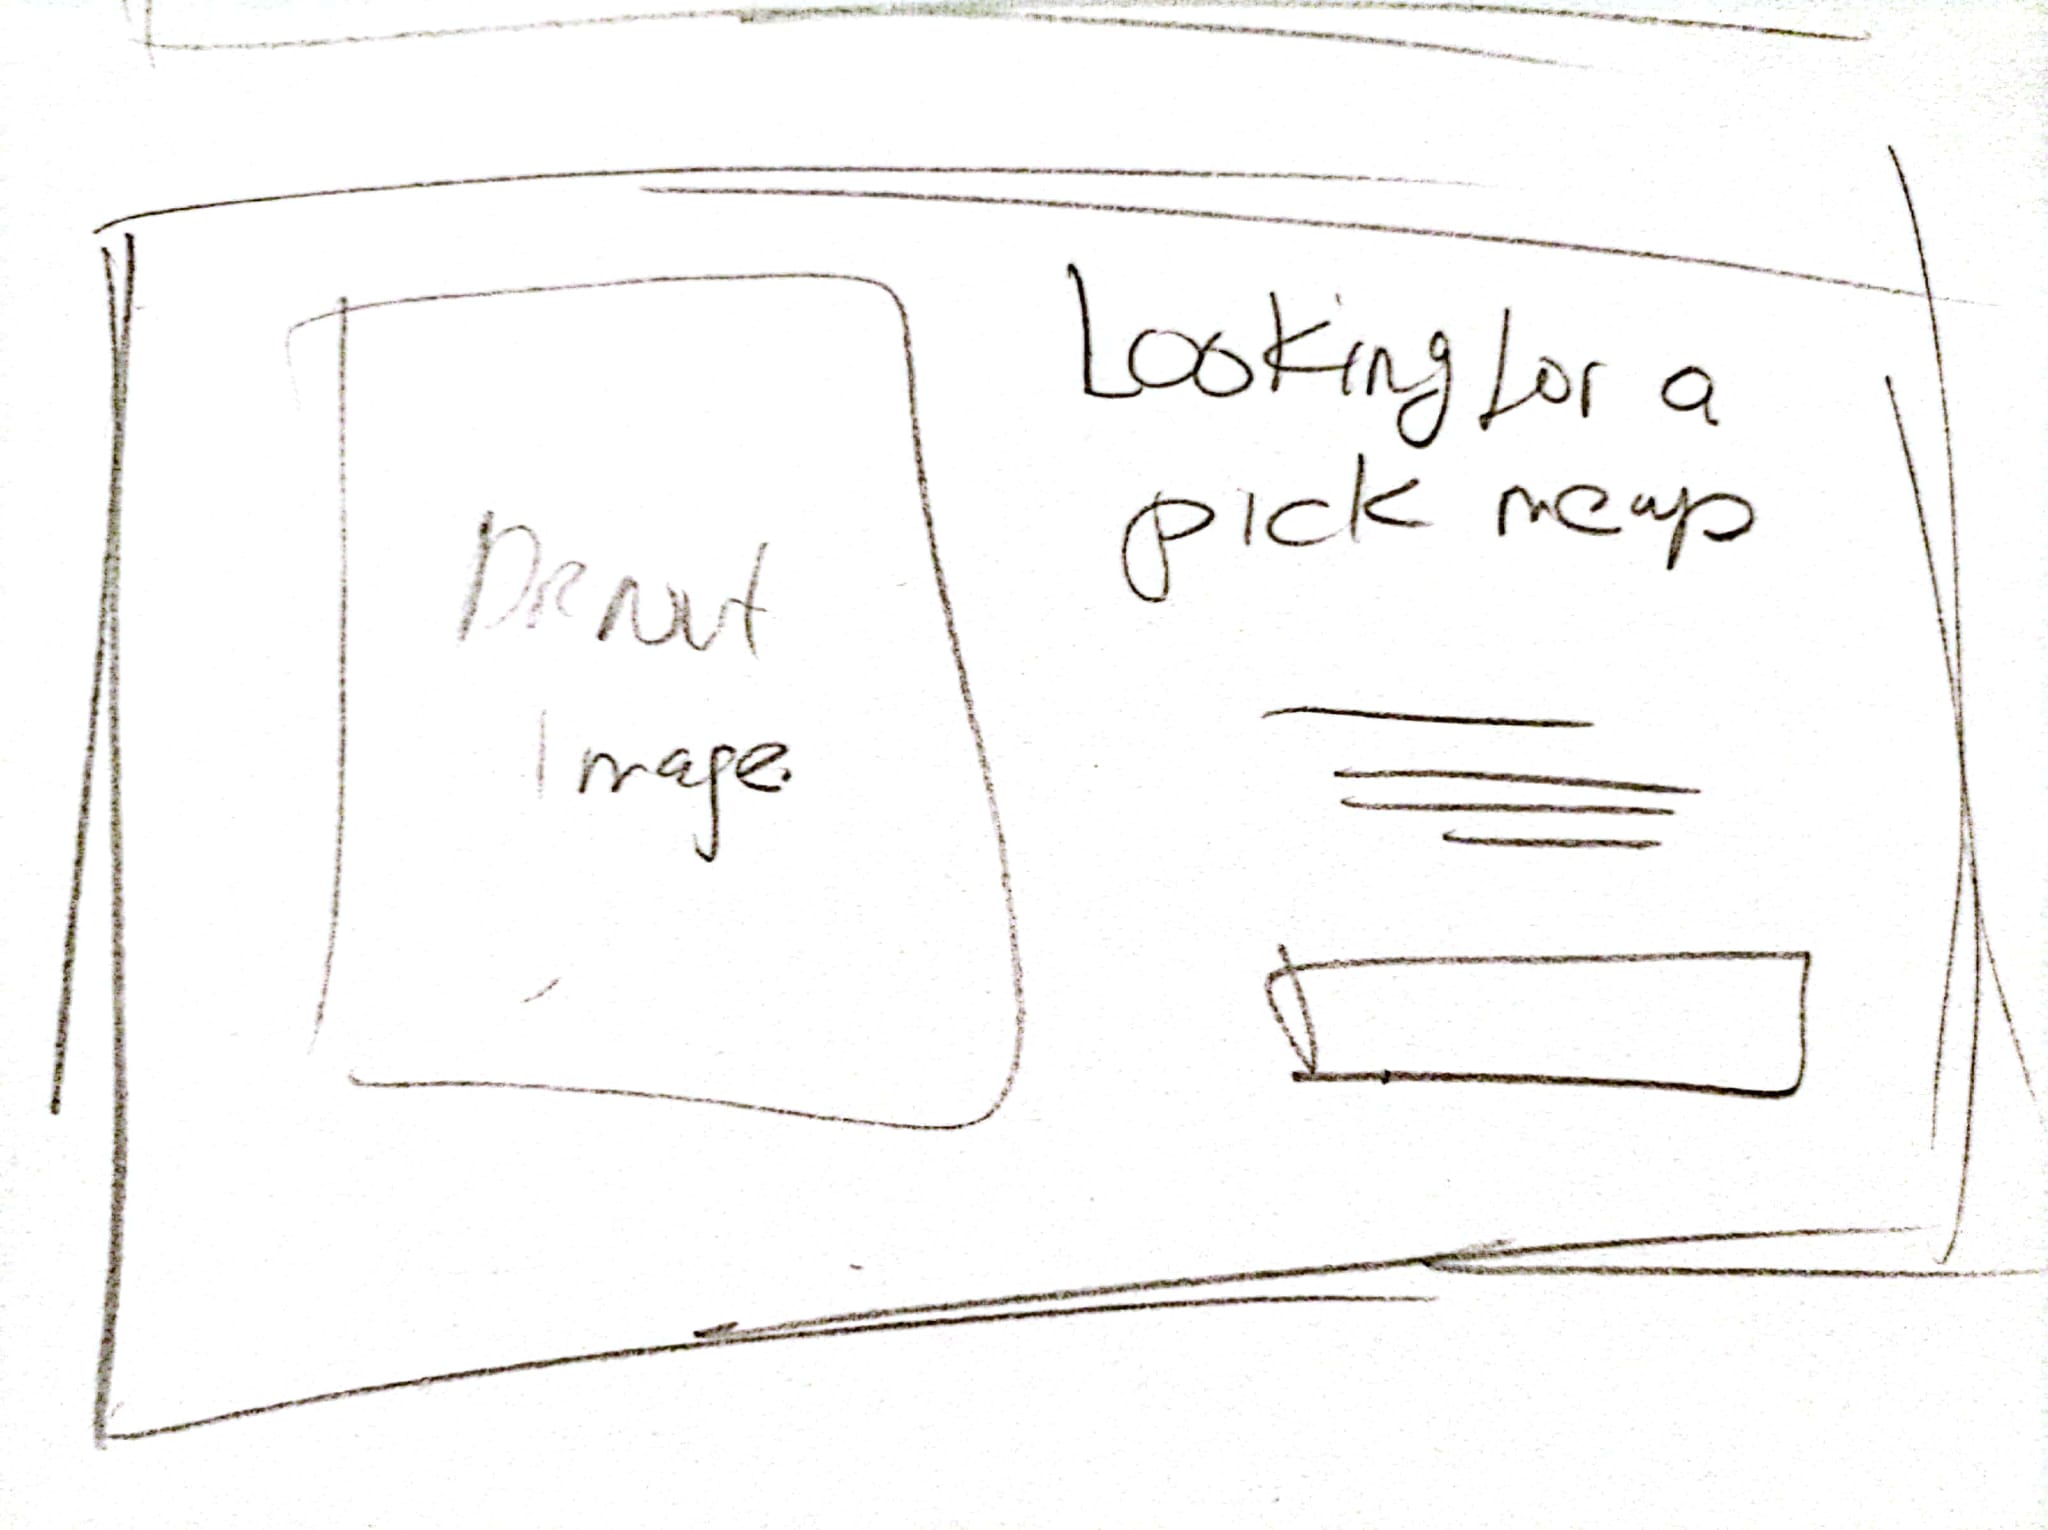 Donut
Image.
Looking for a
pick me up